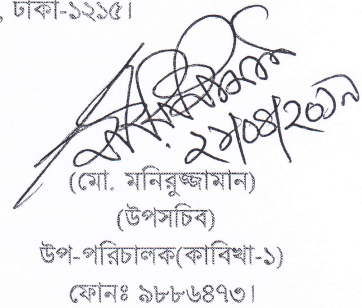 , ঢাকা-১২১৫।
২১/০৪/২০১৯
(মো. মনিরুজ্জামান)
(উপসচিব)
উপ-পরিচালক(কাবিখা-১)
ফোনঃ ৯৮৮৬৪৭৩।